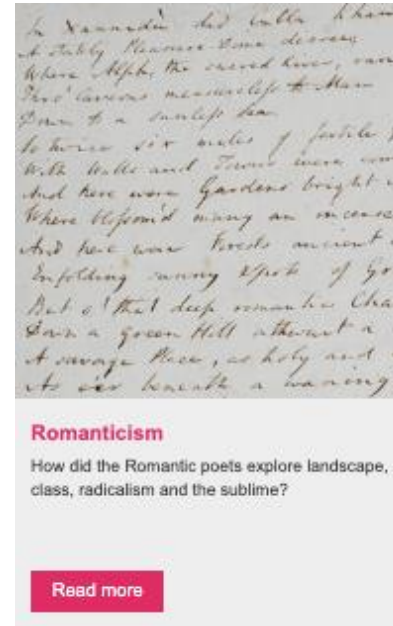 In Xannadù did Cubla Khan
A stately Pleasure Dome decree,
Where Alph, the sacred River, ran
Thro' Caverns measureless to Man
Down to a sunless Sea.
So twice six miles of fertile
With Walls and Towers were
And here were Gardens bright
Where blossom'd many an incense
And here were Forests ancient
Enfolding sunny Spots of
But o! that deep romantic
Down a green Hill athwart a
A savage Place, as holy and
As e'er beneath a waning
Romanticism
How did the Romantic poets explore landscape,
class, radicalism and the sublime?
Read more